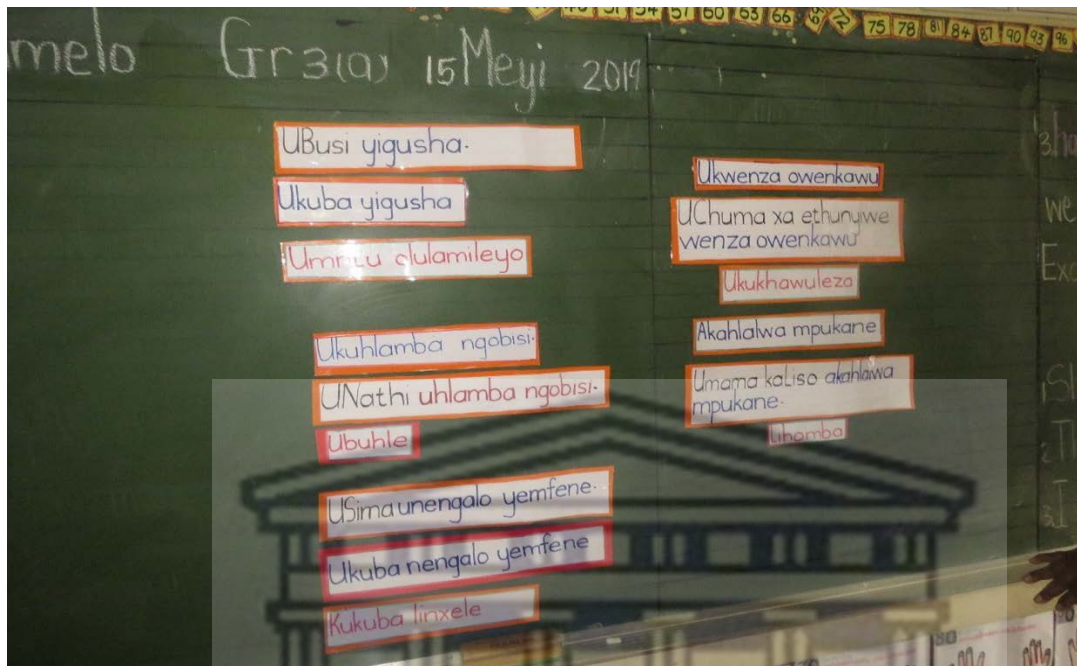 melo Gr3(a) 15 Meyi 2019
75 78 81 84 87 90 93 96
57 60 63 66 69 72
UBusi yigusha.
Ukuba yigusha
Umntu olulamileyo
Ukuhlamba ngobisi.
UNathi uhlamba ngobisi.
Ubuhle
USima unengalo yemfene.
Ukuba nengalo yemfene
Kukuba linxele
Ukwenza owenkawu
UChuma xa ethunywe
wenza owenkawu
Ukukhawuleza
Akahlalwa mpukane
Umama kaliso akahlalwa
mpukane.
Uhomba
3.ha
we
Exc
1.Sl
2.Th
3.I
80